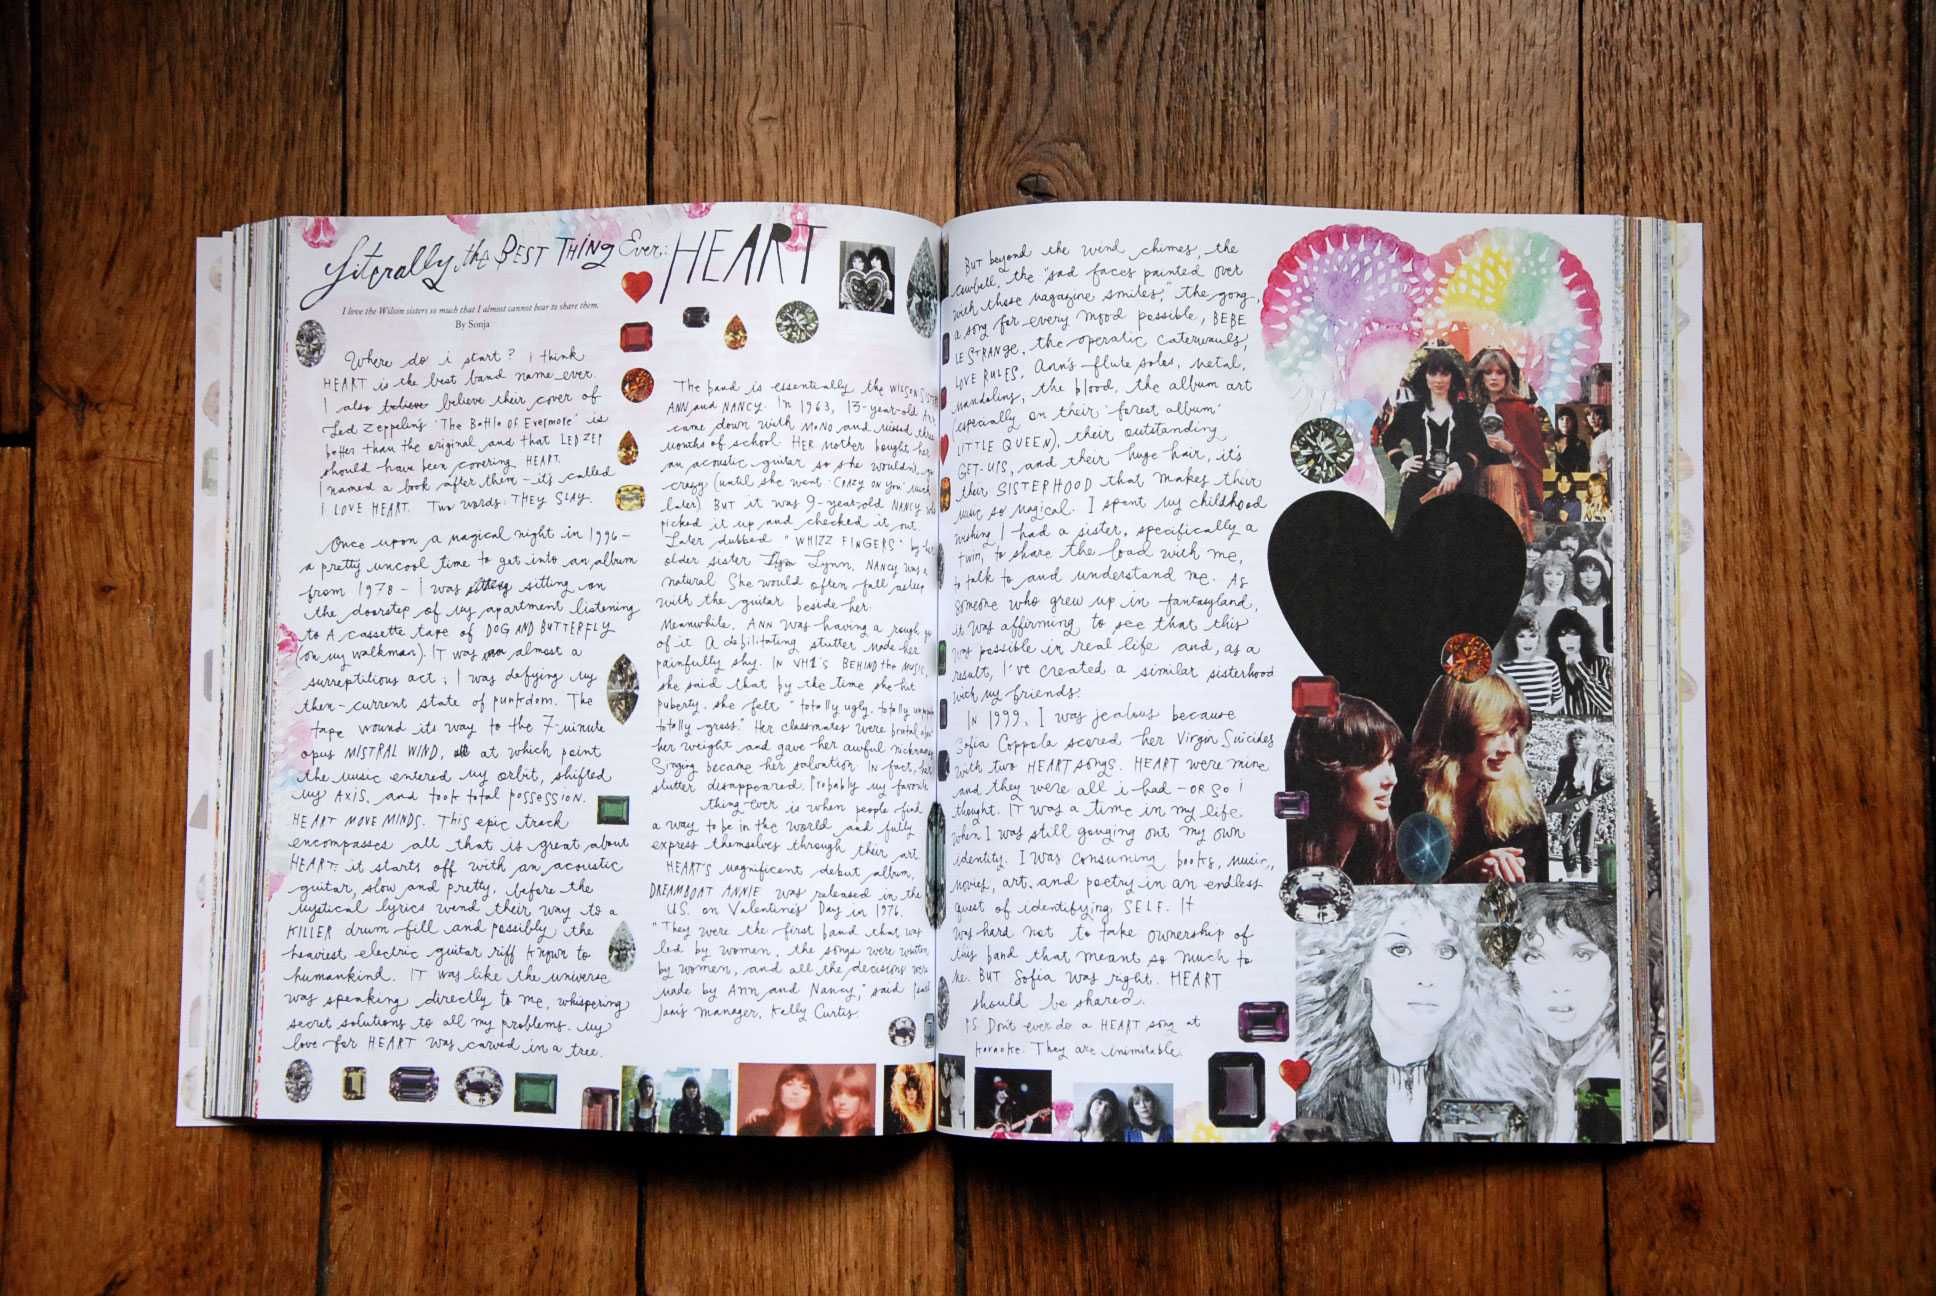 Literally the BEST THING Ever: HEART
I love the Wilson sisters so much that I almost cannot bear to share them.
By Sonja
Where do i start? I think
HEART is the best band name ever.
I also believe believe their cover of
Led Zeppelin's 'The Battle of Evermore' is
better than the original and that LED ZEP
should have been covering HEART.
I named a book after them - it's called
I LOVE HEART. Two words: THEY SLAY.
Once upon a magical night in 1996 -
a pretty uncool time to get into an album
from 1978 - I was sitting on
the doorstep of my apartment listening
to A cassette tape of DOG AND BUTTERFLY
(on my walkman). IT was almost a
surreptitious act; I was defying my
then-current state of punkdom. The
tape wound its way to the 7-minute
opus MISTRAL WIND, at which point
the music entered my orbit, shifted
my AXIS, and took total possession.
HEART MOVE MINDS. This epic track
encompasses all that is great about
HEART: it starts off with an acoustic
guitar, slow and pretty, before the
mystical lyrics wend their way to a
KILLER drum fill and possibly the
heaviest electric guitar riff known to
humankind. IT was like the universe
was speaking directly to me, whispering
secret solutions to all my problems. My
love for HEART was carved in a tree.
The band is essentially the WILSON
ANN and NANCY. In 1963, 13-year-old Ann
came down with MONO and missed three
months of school. HER mother bought her
an acoustic guitar so she wouldn't go
crazy (until she went 'CRAZY ON YOU' much
later) BUT it was 9-year-old NANCY who
picked it up and checked it out.
Later dubbed "WHIZZ FINGERS" by her
older sister Lynn, NANCY was a
natural She would often fall asleep
with the guitar beside her.
Meanwhile, ANN was having a rough go
of it A debilitating stutter made her
painfully shy. IN VH1's BEHIND the MUSIC,
she said that by the time she hit
puberty, she felt "totally ugly, totally
totally gross." Her classmates were brutal about
her weight and gave her awful nicknames
Singing became her salvation IN fact, her
stutter disappeared. Probably my favorite
thing ever is when people find
a way to be in the world and fully
express themselves through their art.
HEART'S magnificent debut album,
DREAMBOAT ANNIE was released in the
U.S. on Valentine's Day in 1976.
"They were the first band that was
led by women, the songs were written
by women, and all the decisions were
made by Ann and Nancy," said
manager, Kelly Curtis.
BUT beyond the wind chimes, the
cowbell, the "sad faces painted over
with those magazine smiles," the gong,
a song for every mood possible, BEBE
LE STRANGE, the operatic caterwauls,
LOVE RULES, Ann's flute solos, metal,
mandolins, the blood, the album art
(especially on their 'forest album'
LITTLE QUEEN), their outstanding
GET-UPS, and their huge hair, it's
their SISTERHOOD that makes their
music so magical. I spent my childhood
wishing I had a sister, specifically a
twin, to share the load with me,
to talk to and understand me. As
someone who grew up in fantasyland,
it was affirming to see that this
was possible in real life and, as a
result, I've created a similar sisterhood
with my friends!
IN 1999, I was jealous because
Sofia Coppola scored her Virgin Suicides
with two HEART songs. HEART were mine
and they were all i had - OR SO I
thought. IT was a time in my life
when I was still gouging out my own
identity. I was consuming books, music,
movies, art, and poetry in an endless
quest of identifying SELF. It
was hard not to take ownership of
this band that meant so much to
me. BUT Sofia was right. HEART
should be shared.
PS Don't ever do a HEART song at
karaoke. They are inimitable.